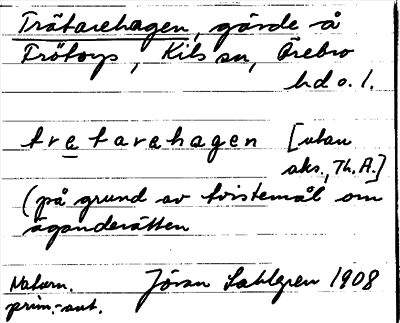 Trätarehagen, gärde å
Frötorp, Kils sn, Örebro
hd o. l.
tretarahagen [utan
aks., Th. A.]
(på grund av tvistemål om
äganderätten
Naturn. Jöran Sahlgren 1908
prim.-ant.